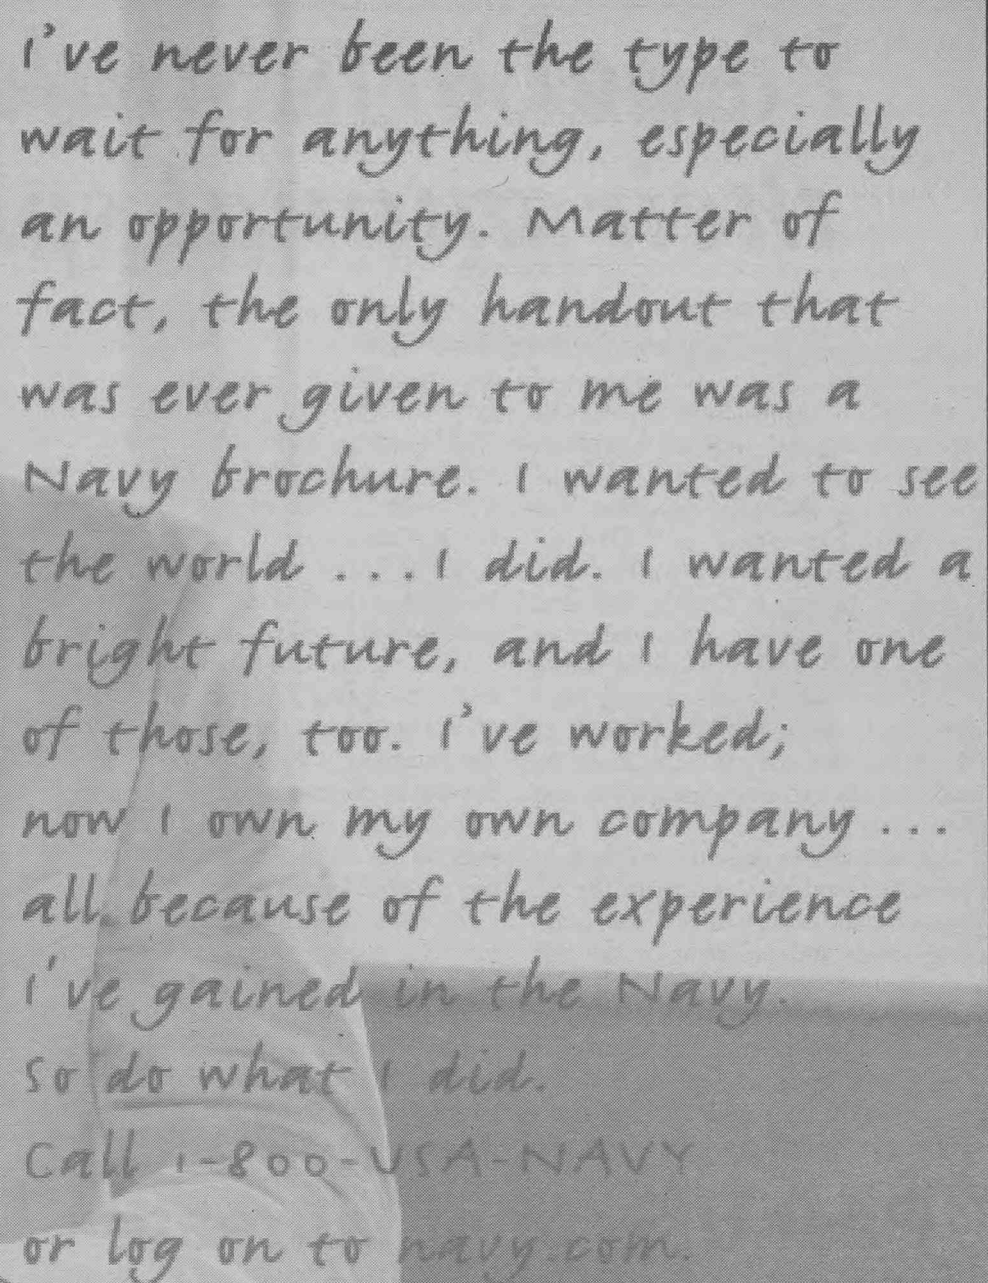 I've never been the type to
wait for anything, especially
an opportunity. Matter of
fact, the only handout that
was ever given to me was a
Navy brochure. I wanted to see
the world ... I did. I wanted a
bright future, and I have one
of those, too. I've worked;
now I own my own company ...
all because of the experience
I've gained in the Navy.
So do what I did.
Call 1-800-USA-NAVY
or log on to navy.com.